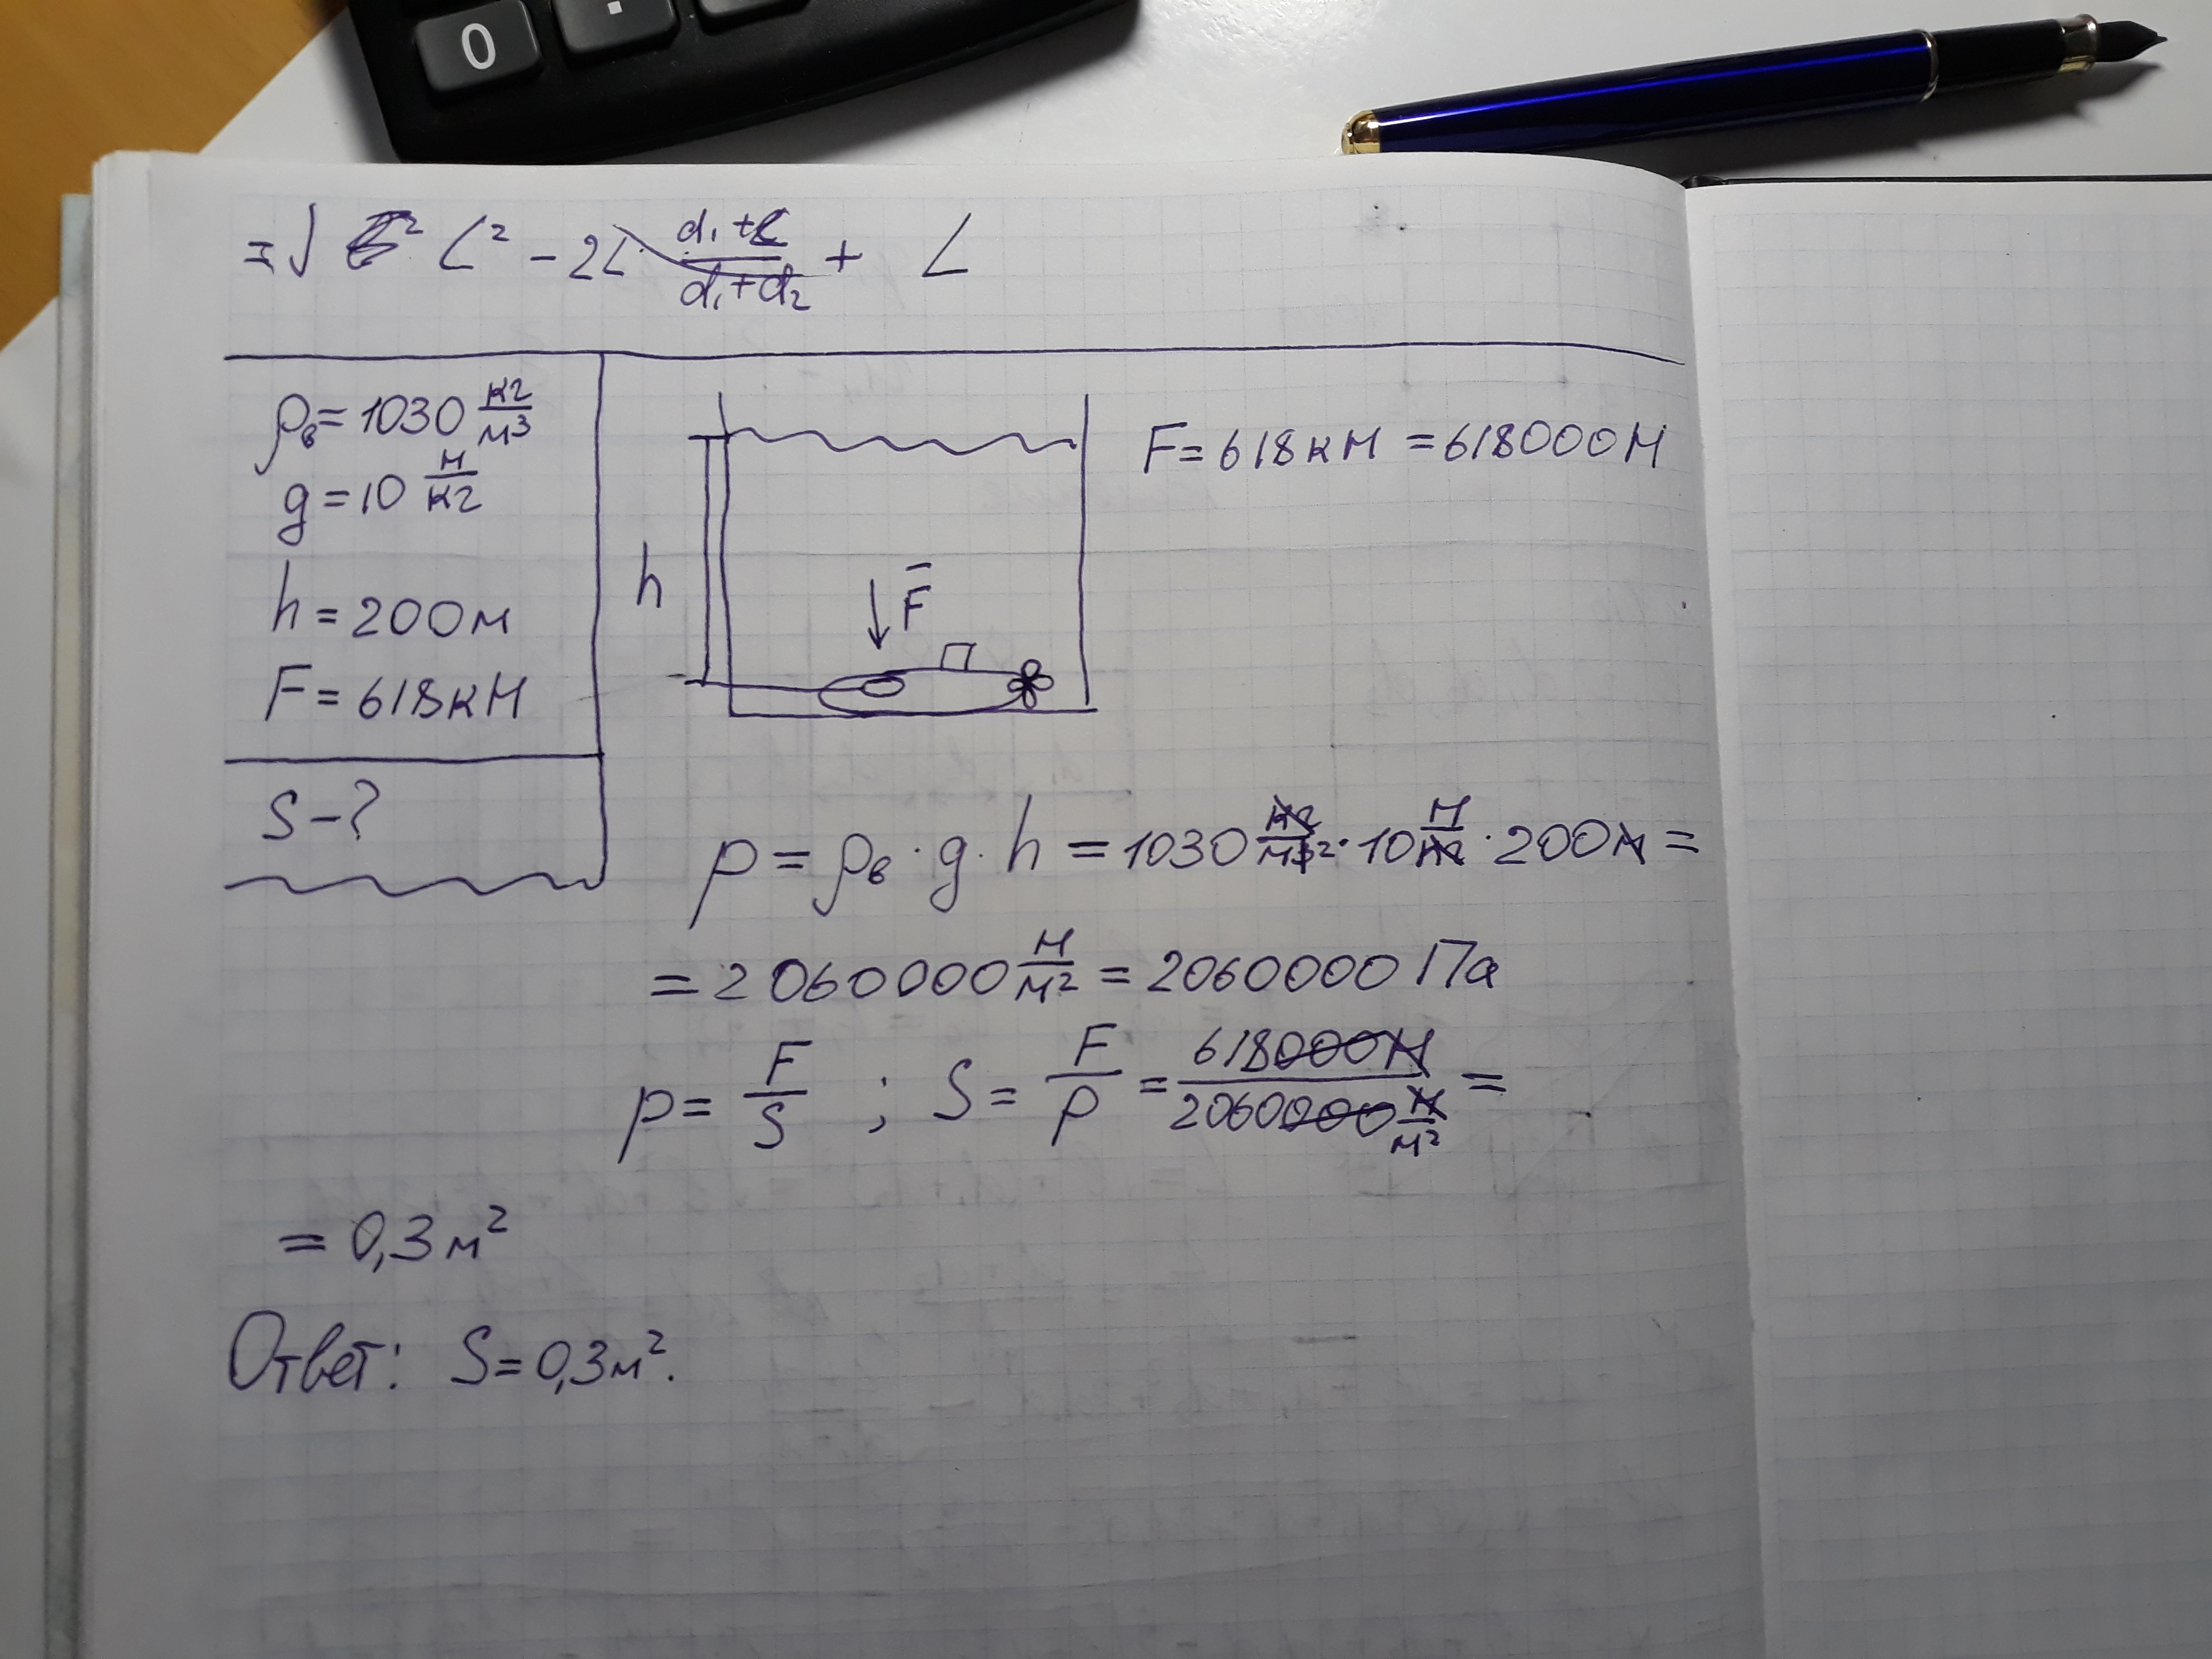 0 .
= √ L² - 2L d₁+L/d₁+d₂ + L
ρв = 1030 кг/м³
g = 10 н/кг
h = 200м
F = 618кН
S - ?
h
F̅
F = 618кН = 618000Н
p = ρв · g · h = 1030 кг/м³ ² · 10 Н/кг · 200м =
= 2060000 Н/м² = 2060000 Па
p = F/S ; S = F/p = 618000Н/2060000 Н/м² =
= 0,3 м²
Ответ: S = 0,3м².